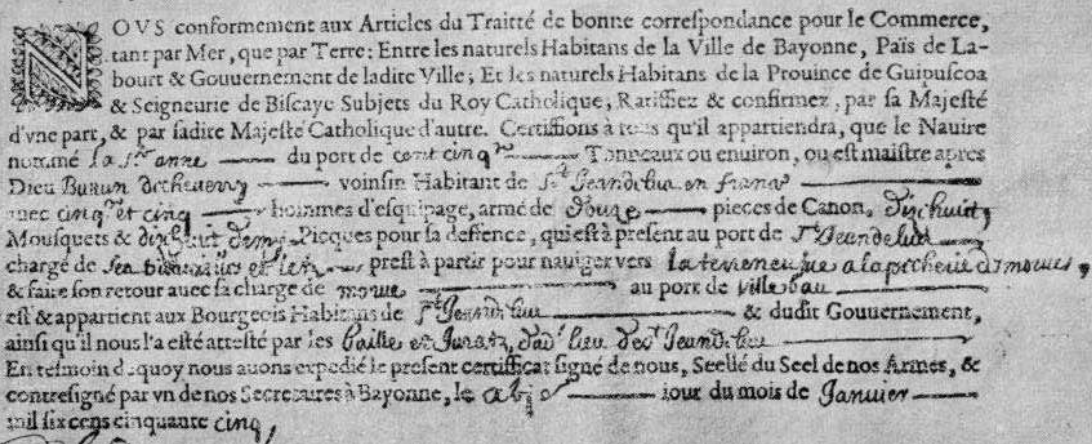 NOVS conformement aux Articles du Traitté de bonne correspondance pour le Commerce,
tant par Mer, que par Terre: Entre les naturels Habitans de la Ville de Bayonne, Païs de La-
bourt & Gouuernement de ladite Ville; Et les naturels Habitans de la Prouince de Guipuscoa
& Seigneurie de Biscaye Subjets du Roy Catholique; Ratiffiez & confirmez, par sa Majesté
d'vne part, & par sadite Majesté Catholique d'autre. Certiffions à tous qu'il appartiendra, que le Nauire
nommé la Ste anne du port de cent cinqte Tonneaux ou enuiron, ou est maistre apres
Dieu voinsin Habitant de St Jean de luz en france
auec cinqte et cinq hommes d'esquipage, armé de douze pieces de Canon, dixhuict
Mousquets & dixhuict demy Picques pour sa deffence, qui est à present au port de St Jean de luz
chargé de ses prest à partir pour nauiger vers la terreneufue a la pecherie de moeues,
& faire son retour auec sa charge de moeue au port de
est & appartient aux Bourgeois Habitans de St Jean de luz & dudit Gouuernement,
ainsi qu'il nous l'a esté attesté par les Baille et Juratz dud. lieu de St Jean de luz
En tesmoin dequoy nous auons expedié le present certifficat signé de nous, Seellé du Seel de nos Armes, &
contresigné par vn de nos Secretaires à Bayonne, le iour du mois de Januier
mil six cens cinquante cinq,